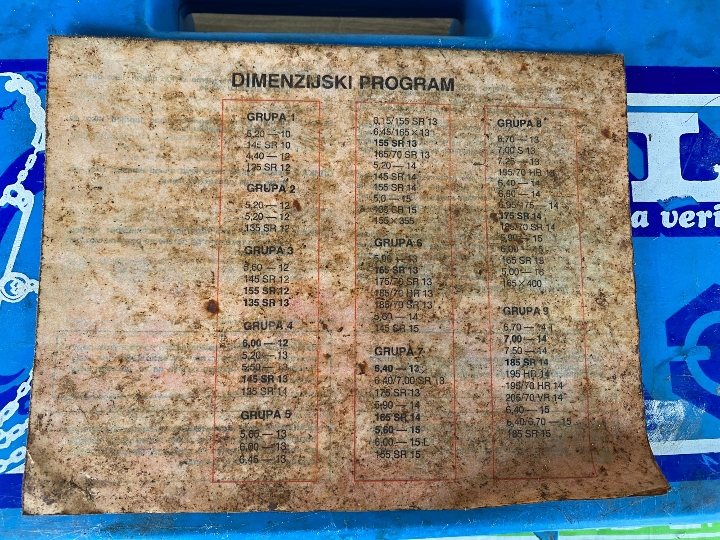 DIMENZIJSKI PROGRAM
GRUPA 1
5,20 — 10
145 SR 10
4,40 — 12
125 SR 12
GRUPA 2
5,20 — 12
5,20 — 12
135 SR 12
GRUPA 3
5,60 — 12
145 SR 12
155 SR 12
135 SR 13
GRUPA 4
6,00 — 12
5,20 — 13
5,50 — 13
145 SR 13
135 SR 14
GRUPA 5
5,60 — 13
6,00 — 13
6,45 — 13
6,15/155 SR 13
6,45/165 × 13
155 SR 13
165/70 SR 13
5,20 — 14
145 SR 14
155 SR 14
5,0 — 15
SR 15
155 × 355
GRUPA 6
5,90 — 13
165 SR 13
175/70 SR 13
185/70 HR 13
185/70 SR 13
5,60 — 14
145 SR 15
GRUPA 7
6,40 — 13
6,40/7,00 SR 13
175 SR 13
5,90 — 14
165 SR 14
5,60 — 15
6,00 — 15 L
155 SR 15
GRUPA 8
6,70 — 13
7,00 S 13
7,25 — 13
195/70 HB 13
6,40 — 14
6,50 — 14
6,95/175 — 14
175 SR 14
185/70 SR 14
5,90 — 15
6,00 — 15
165 SR 15
5,00 — 16
165 × 400
GRUPA 9
6,70 — 14
7,00 — 14
7,50 — 14
185 SR 14
195 HD 14
195/70 HR 14
205/70 VR 14
6,40 — 15
6,40/6,70 — 15
185 SR 15
L
a veri